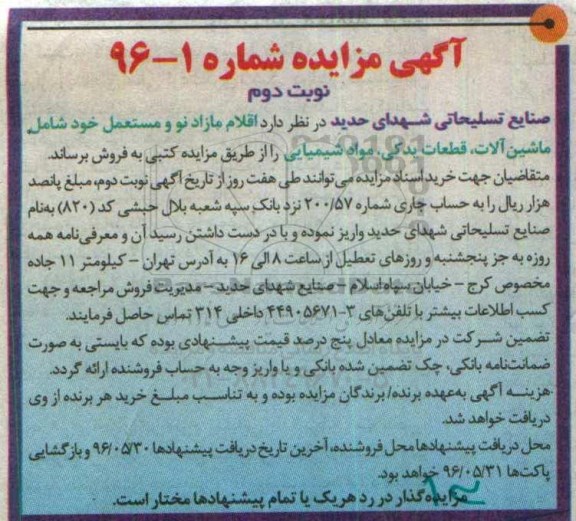 آگهی مزایده شماره ۱-۹۶
نوبت دوم
صنایع تسلیحاتی شهدای حدید در نظر دارد اقلام مازاد نو و مستعمل خود شامل
ماشین آلات، قطعات یدکی، مواد شیمیایی را از طریق مزایده کتبی به فروش برساند.
متقاضیان جهت خرید اسناد مزایده می توانند طی هفت روز از تاریخ آگهی نوبت دوم، مبلغ پانصد
هزار ریال را به حساب جاری شماره ۲۰۰/۵۷ نزد بانک سپه شعبه بلال حبشی کد (۸۲۰) به‌نام
صنایع تسلیحاتی شهدای حدید واریز نموده و با در دست داشتن رسید آن و معرفی‌نامه همه
روزه به جز پنجشنبه و روزهای تعطیل از ساعت ۸ الی ۱۶ به آدرس تهران - کیلومتر ۱۱ جاده
مخصوص کرج - خیابان سپاه اسلام - صنایع شهدای حدید - مدیریت فروش مراجعه و جهت
کسب اطلاعات بیشتر با تلفن‌های ۳-۴۴۹۰۵۶۷۱ داخلی ۳۱۴ تماس حاصل فرمایند.
تضمین شرکت در مزایده معادل پنج درصد قیمت پیشنهادی بوده که بایستی به صورت
ضمانت‌نامه بانکی، چک تضمین شده بانکی و یا واریز وجه به حساب فروشنده ارائه گردد.
هزینه آگهی به‌عهده برنده/برندگان مزایده بوده و به تناسب مبلغ خرید هر برنده از وی
دریافت خواهد شد.
محل دریافت پیشنهادها محل فروشنده، آخرین تاریخ دریافت پیشنهادها ۹۶/۰۵/۳۰ و بازگشایی
پاکت‌ها ۹۶/۰۵/۳۱ خواهد بود.
مزایده‌گذار در رد هریک یا تمام پیشنهادها مختار است.